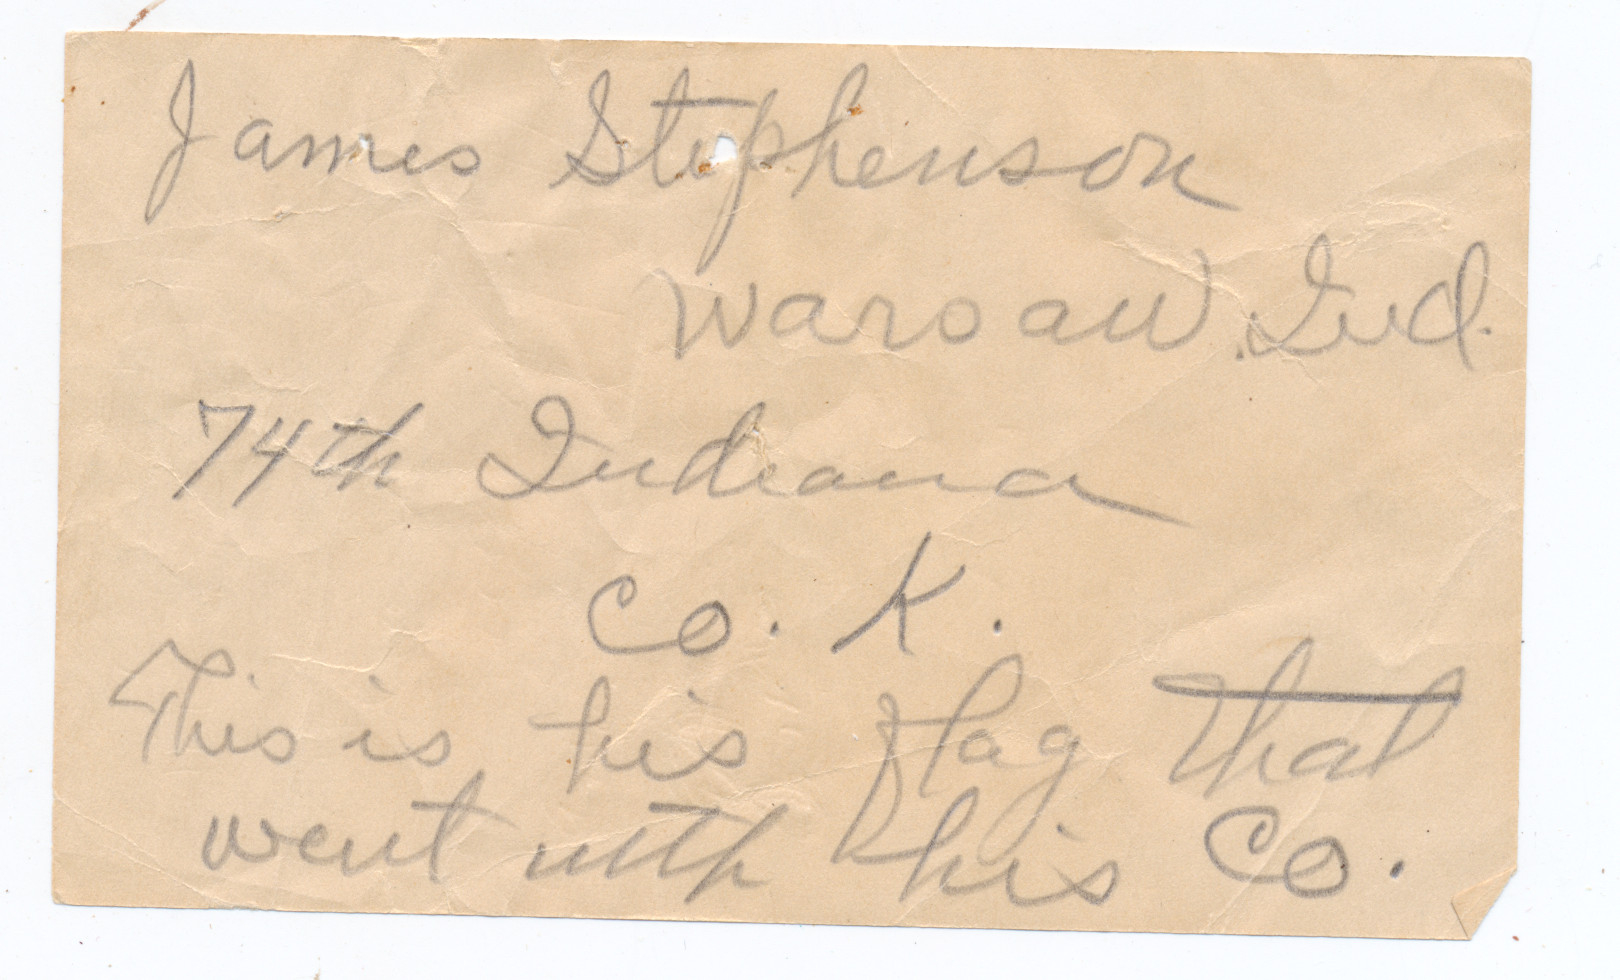 James Stephenson
Warsaw, Ind.
74th Indiana
Co. K.
This is his flag that
went with his Co.